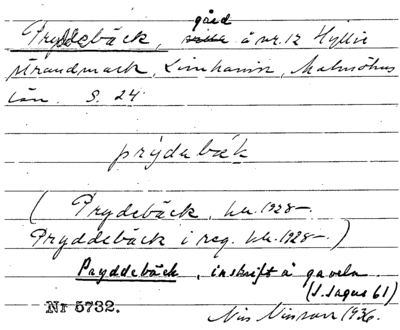 gård
Pryddebäck, villa å nr. 12 Hyllie
strandmark, Limhamn, Malmöhus
län. S. 24
prýdabäk
( Prydebäck, kh. 1928-.
Pryddebäck i reg. kh. 1928-. )
Pryddebäck, inskrift å gaveln.
(J. Sagus 61)
Nr 5732.
Nils Nilsson 1936.